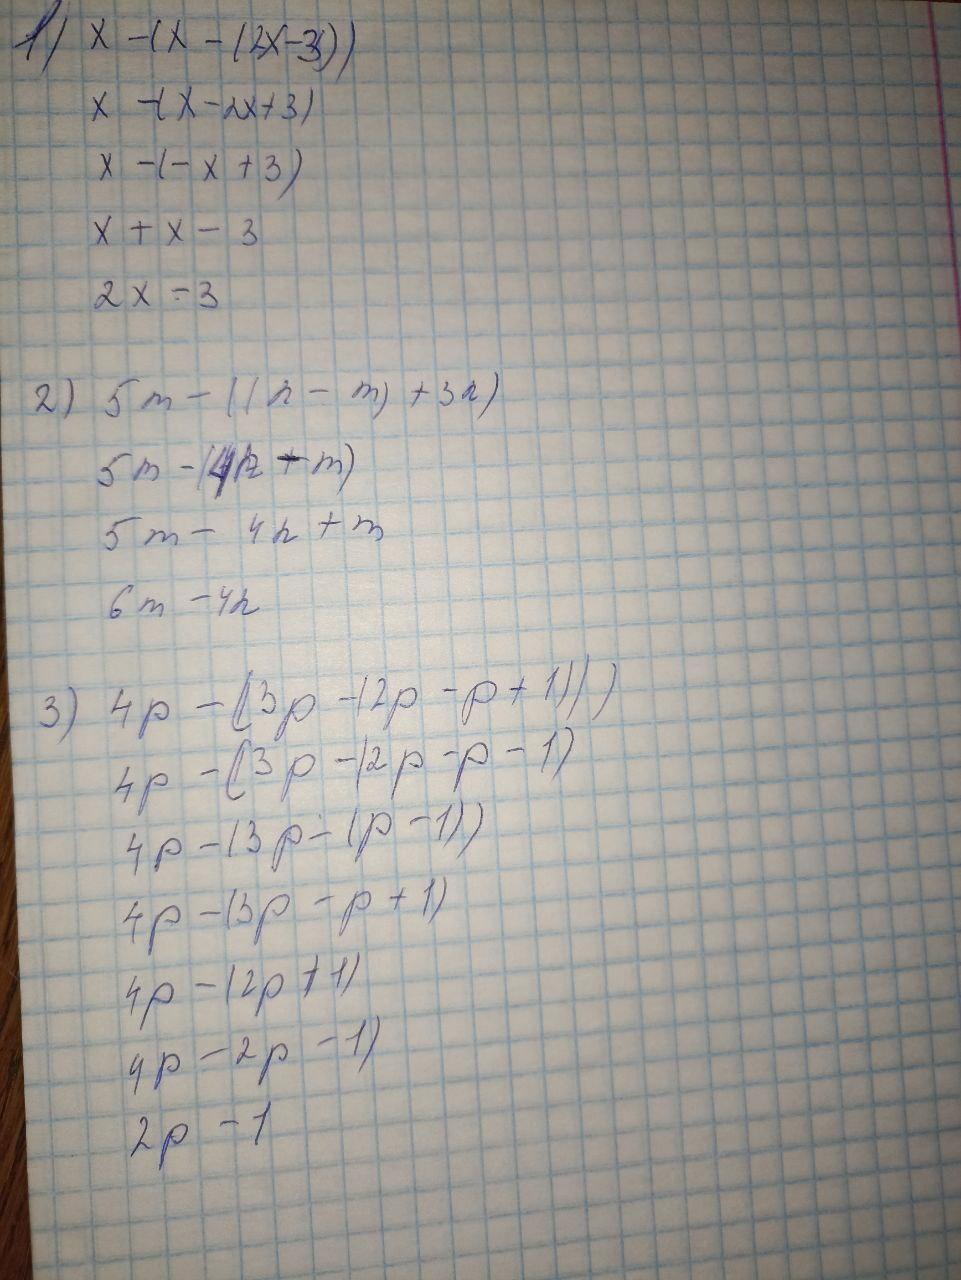 1) x - (x - (2x - 3))
x - (x - 2x + 3)
x - (- x + 3)
x + x - 3
2x - 3
2) 5m - ((n - m) + 3n)
5m - (4n - m)
5m - 4n + m
6m - 4n
3) 4p - (3p - (2p - p + 1)))
4p - (3p - (2p - p - 1)
4p - (3p - (p - 1))
4p - (3p - p + 1)
4p - (2p + 1)
4p - 2p - 1)
2p - 1